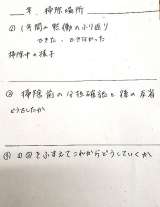 年 掃除場所
① 1年間の整備のふり返り
できた、できなかった
掃除中の様子
② 掃除前の分担確認と後の反省
どうだったか
③ ①②をふまえてこれからどうしていくか